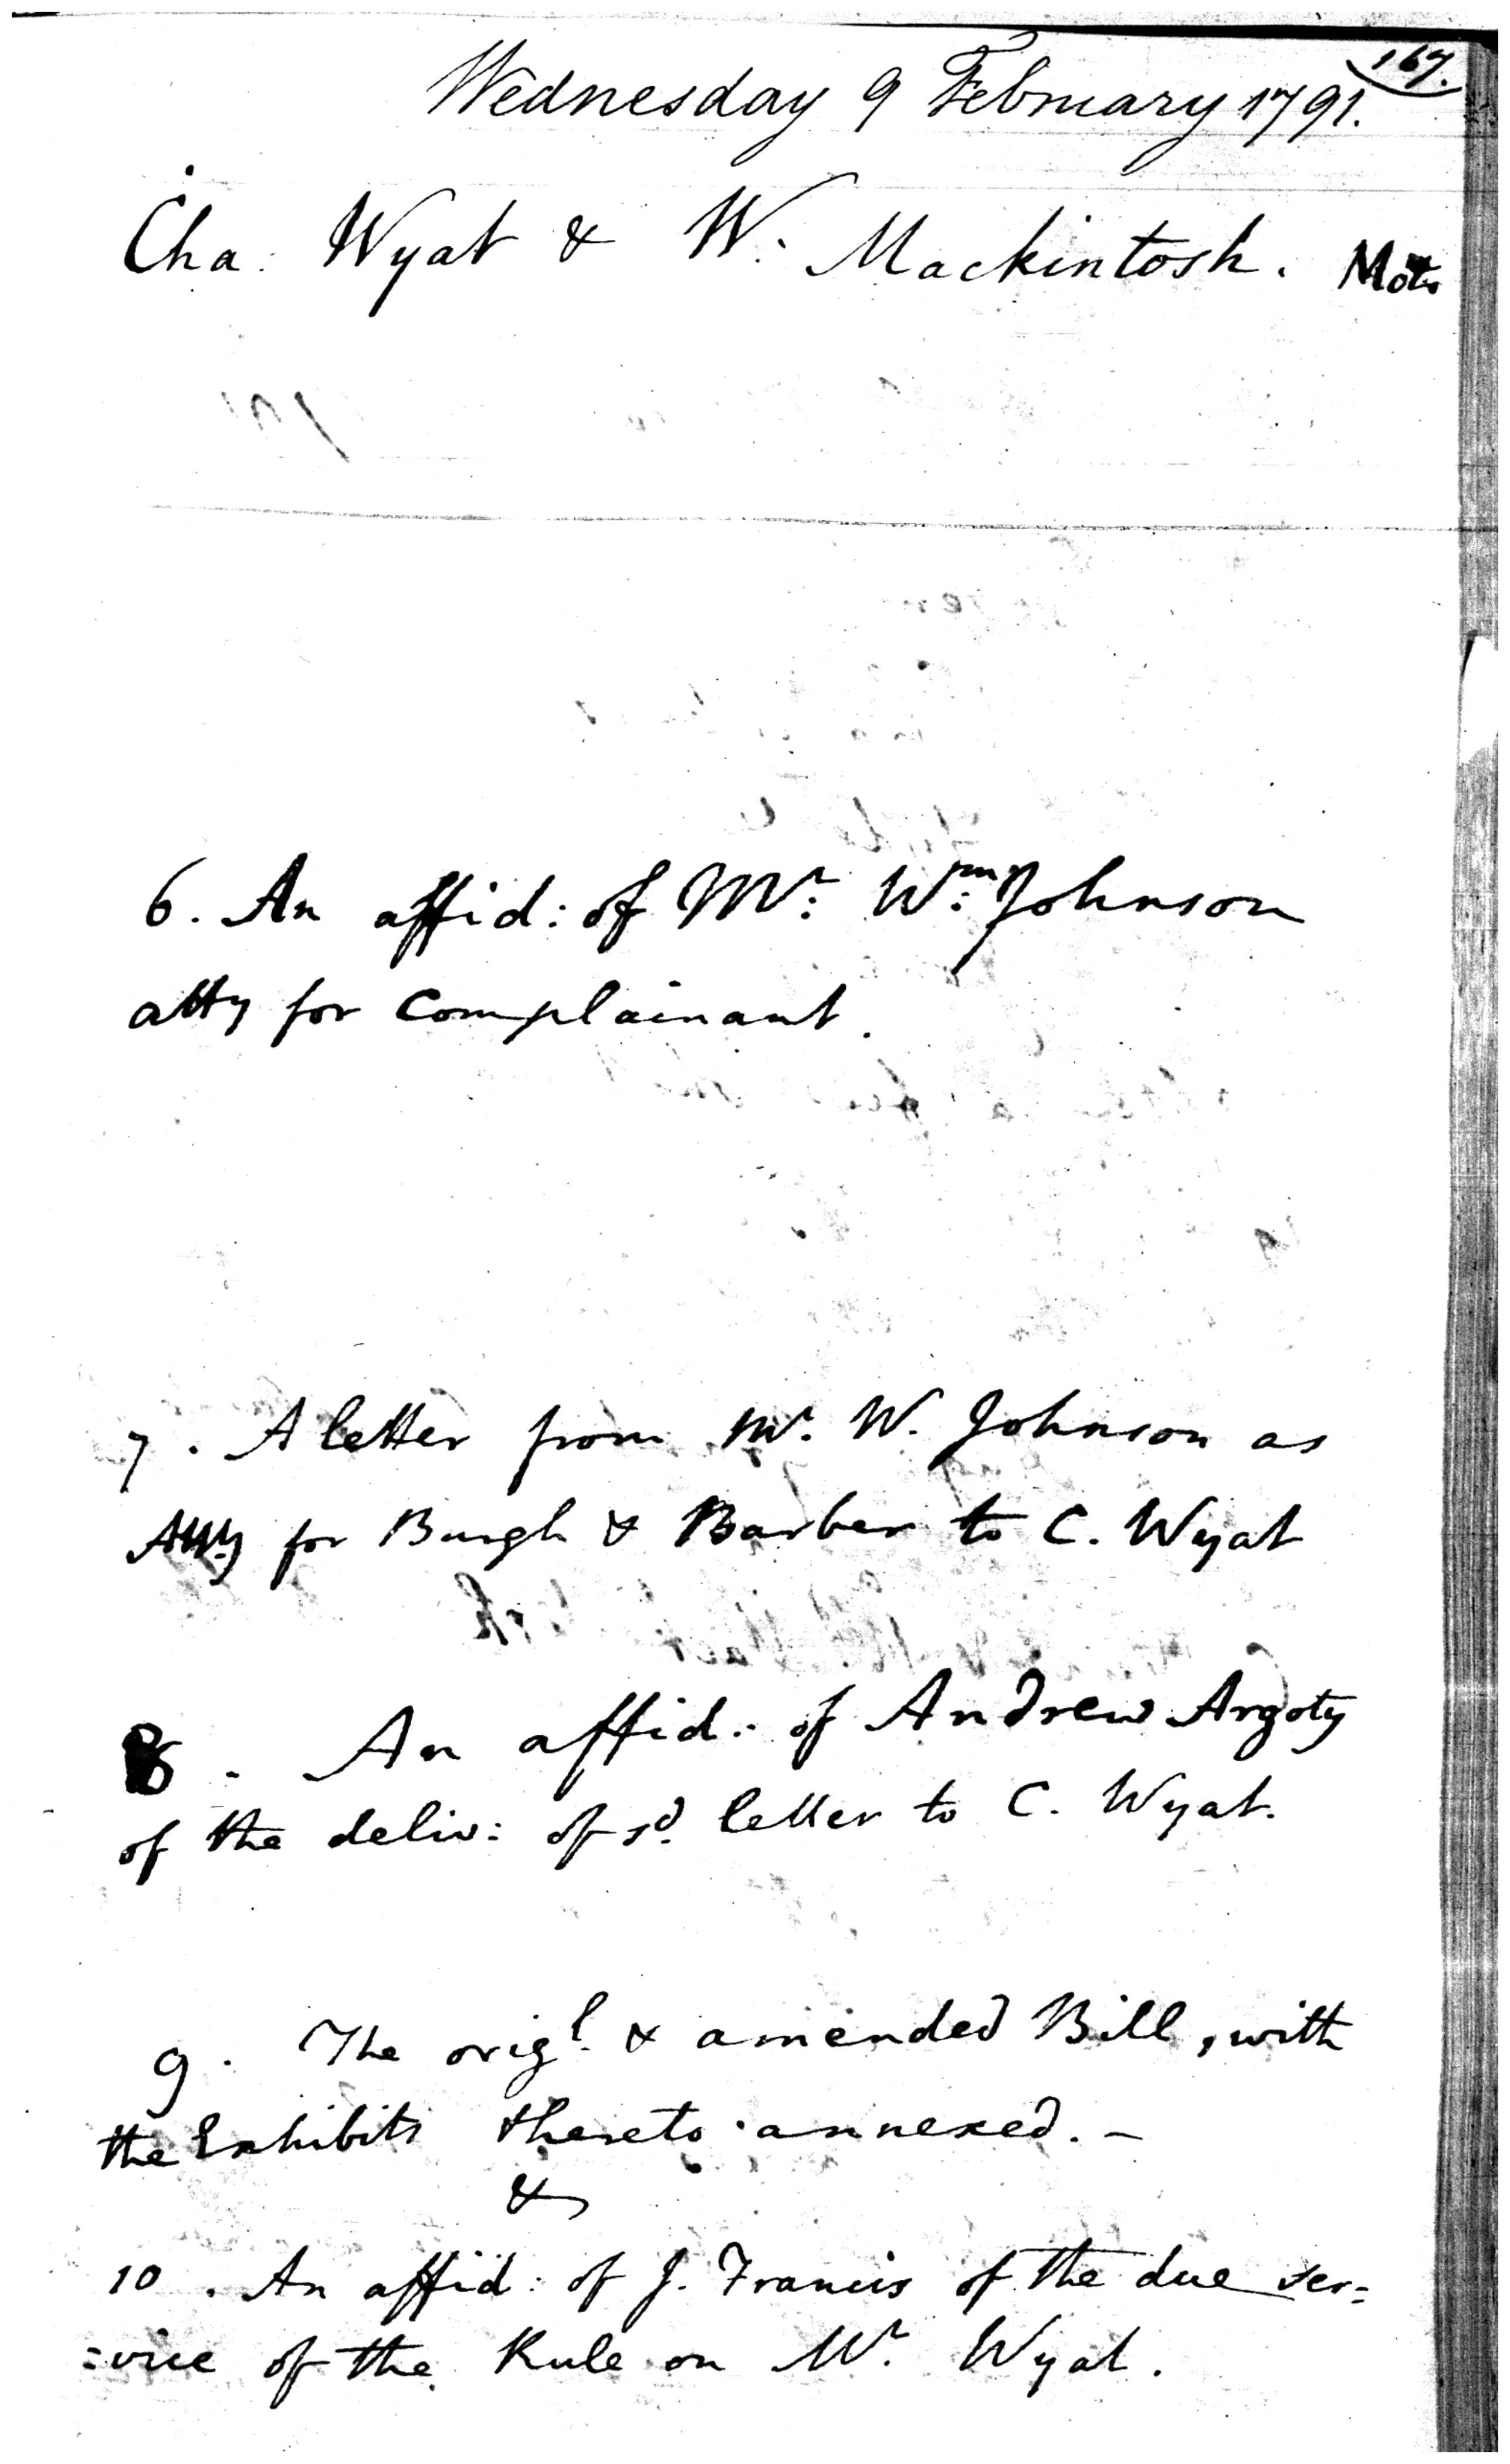 167.
Wednesday 9 February 1791.
Cha: Wyat & W. Mackintosh. Motn
6. An affid: of Mr: Wm: Johnson
atty for Complainant.
7. A letter from Mr. W. Johnson as
Atty for Burgh & Barber to C. Wyat
8. An affid: of Andrew Argoty
of the deliv: of sd. letter to C. Wyat.
9. The origl. & amended Bill, with
the Exhibits thereto annexed. -
&
10. An affid: of J. Francis of the due ser=
=vice of the Rule on Mr. Wyat.